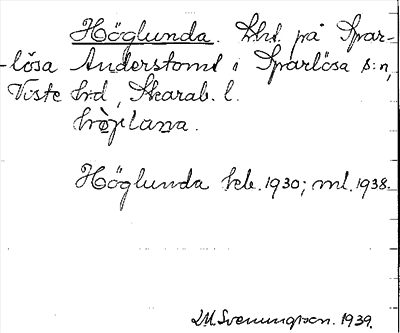 Höglunda. Lht. på Spar-
-lösa Anderstomt i Sparlösa s:n,
Viste hd, Skarab. l.
Höglunda keb. 1930; ml. 1938.
Svenungsson. 1939.